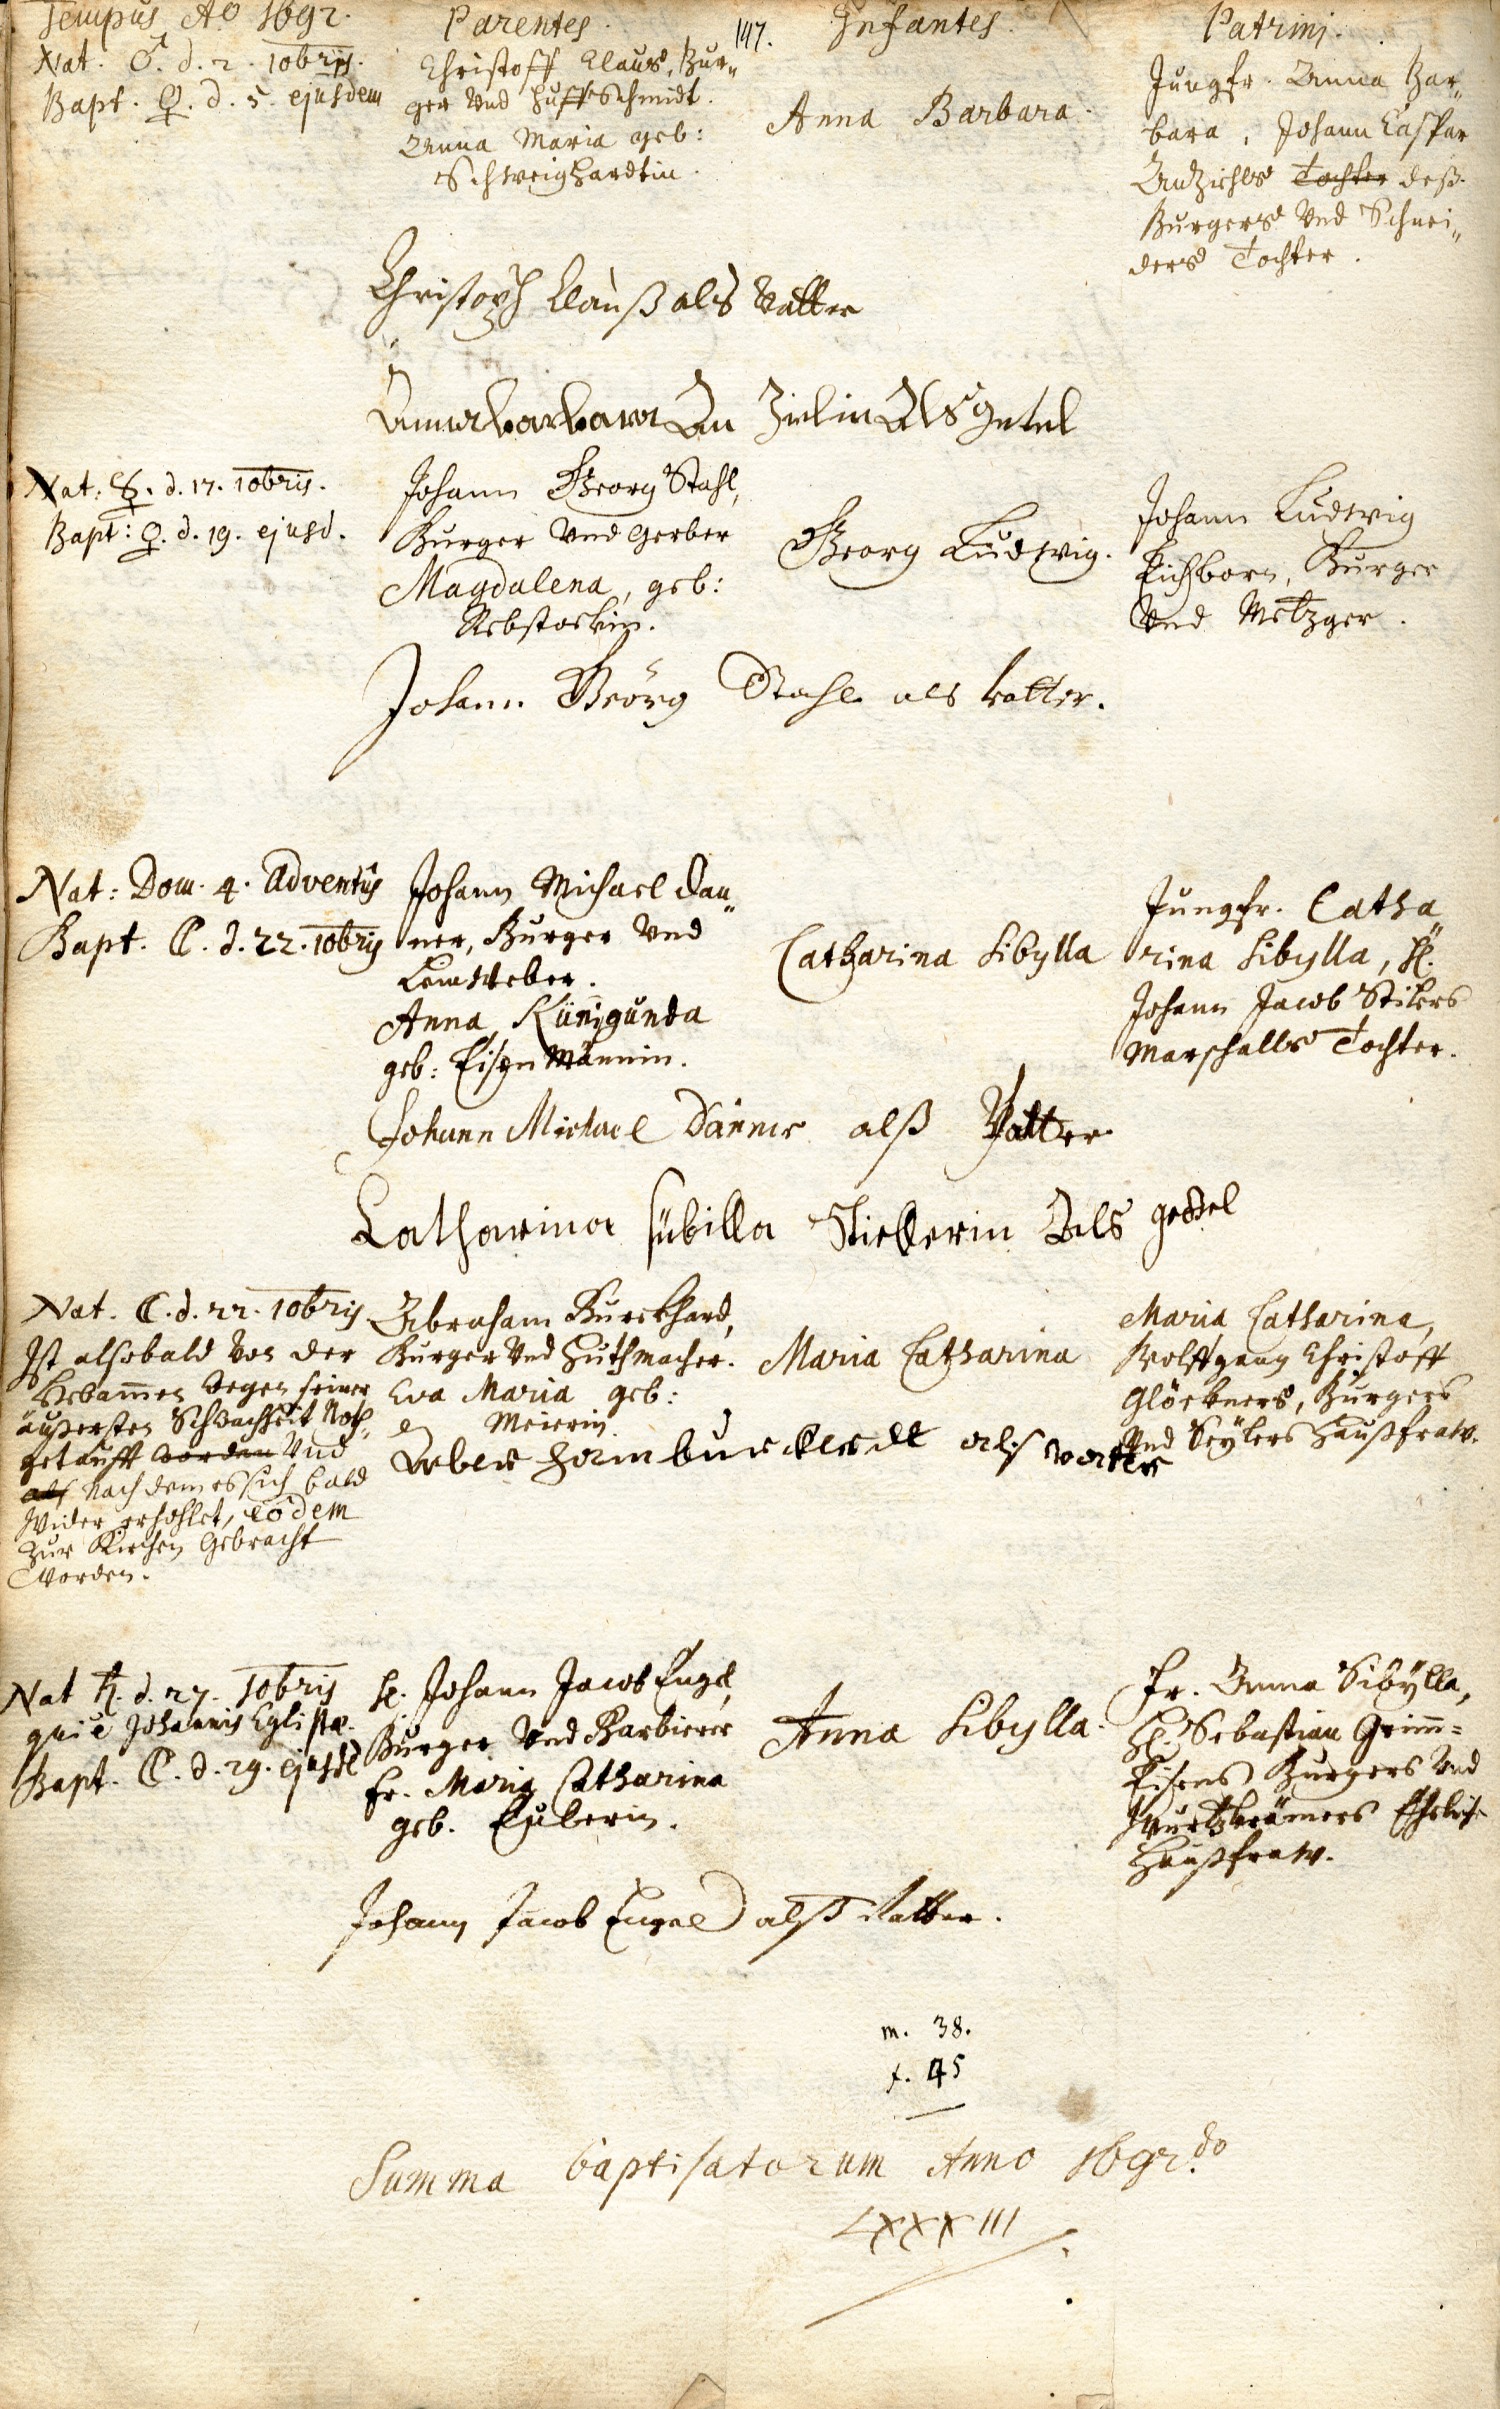 Tempus Ao 1692.
Parentes.
147.
Infantes.
Patrini.
Nat. ♂. d. 2. 10bris.
Bapt. ♀. d. 5. ejusdem
Christoff Claus, Bur„
ger Vnd Huffschmidt.
Anna Maria geb:
Schweighardtin.
Anna Barbara.
Jungfr. Anna Bar„
bara, Johann Caspar
Tochter deß
Burgers Vnd Schnei„
ders Tochter.
Christoph Clauß als Vatter
Anna barbara An Zielin Als getel
Nat: ☿. d. 17. 10bris.
Bapt: ♀. d. 19. ejusd.
Johann Georg Stahl,
Burger Vnd Gerber
Magdalena, geb:
Rebstockin.
Georg Ludwig.
Johann Ludwig
Eichborn, Burger
Vnd Metzger.
Johann Georg Stahl als vatter.
Nat: Dom. 4. Adventus
Bapt. ☾. d. 22. 10bris
Johann Michael Dan„
ner, Burger Vnd
Leinweber.
Anna Kunigunda
geb: Eisenmännin.
Catharina Sibylla
Jungfr. Catha„
rina Sibylla, H.
Johann Jacob Stikers
Marschalls Tochter.
Johann Michael Danner alß Vatter
Catharina sübilla Stickerin Als gettel
Nat. ☾. d. 22. 10bris
Ist alsobald von der
Hebammen wegen seiner
äußersten Schwachheit Noth„
getaufft worden Vnd
als Nach dem es sich bald
wider erhohlet, eodem
zur Kirchen Gebracht
Worden.
Abraham Burckhard,
Burger Vnd Huthmacher.
Eva Maria geb:
Meierin
Maria Catharina
Maria Catharina,
Wolffgang Christoff
Glöckners, Burgers
Vnd Seylers Haußfraw.
burckardt als vatter
Nat ♄. d. 27. 10bris
qui e Johannis Eglistæ.
Bapt. ☾. d. 29. ejusd
H. Johann Jacob Engel,
Burger Vnd Barbierer
Fr. Maria Catharina
geb. Eulerin.
Anna Sibylla.
Fr. Anna Sibylla,
H. Sebastian Grimm=
Eisens Burgers Vnd
Wurtzkrämers Eheliche
Haußfraw.
Johann Jacob Engel alß Vatter.
m. 38.
f. 45
Summa baptisatorum Anno 1692.do
LXXXIII